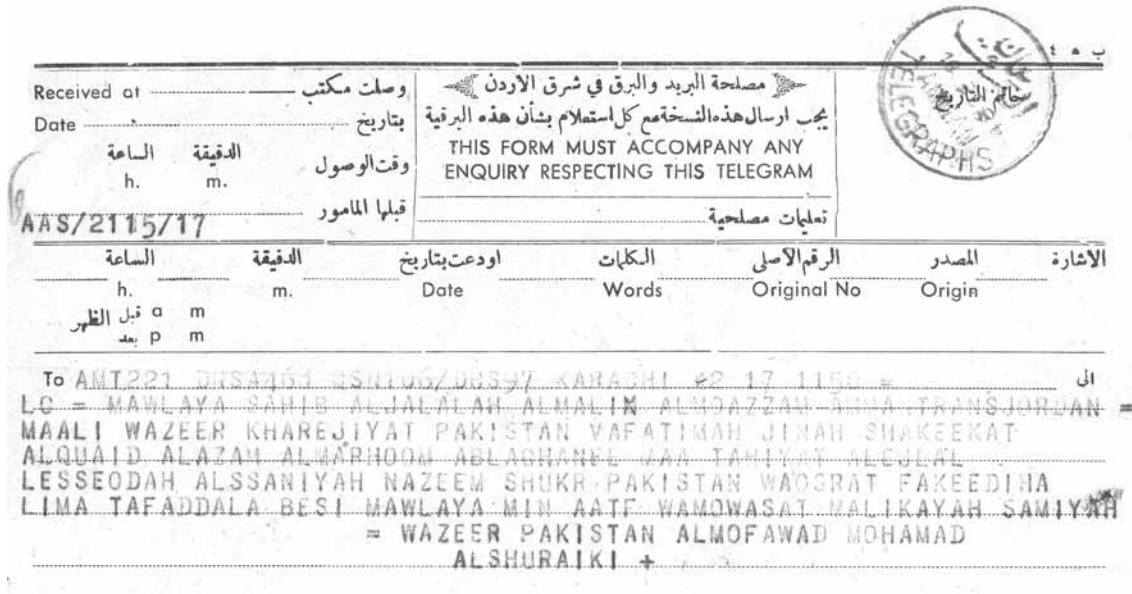 ب ٥ ٤
Received at وصلت مكتب
Date بتاريخ
الساعة الدقيقة وقت الوصول
h. m.
قبلها المامور
AAS/2115/17
مصلحة البريد والبرق في شرق الاردن
يجب ارسال هذه النسخة مع كل استعلام بشأن هذه البرقية
THIS FORM MUST ACCOMPANY ANY
ENQUIRY RESPECTING THIS TELEGRAM
تعليمات مصلحية
خاتم التاريخ
TELEGRAPHS
الساعة الدقيقة اودعت بتاريخ الكلمات الرقم الأصلي المصدر الاشارة
h. m. Date Words Original No Origin
قبل الظهر a m
بعد p m
To AMT221 KARACHI 42 17 1150 = الى
LC = MAWLAYA SAHIB ALJALALAH ALMALIK ALMOAZZAM AMMANTRANSJORDAN =
MAALI WAZEER KHAREJIYAT PAKISTAN VAFATIMAH JINAH SHAKEEKAT
ALQUAID ALAZAM ALMARHOOM ABLAGHANEE MAA TAHIYAT ALEJLAL
LESSEODAH ALSSANIYAH NAZEEM SHUKR PAKISTAN WAOSRAT FAKEEDIHA
LIMA TAFADDALA BESI MAWLAYA MIN AATF WAMOWASAT MALIKAYAH SAMIYAH
= WAZEER PAKISTAN ALMOFAWAD MOHAMAD
ALSHURAIKI +